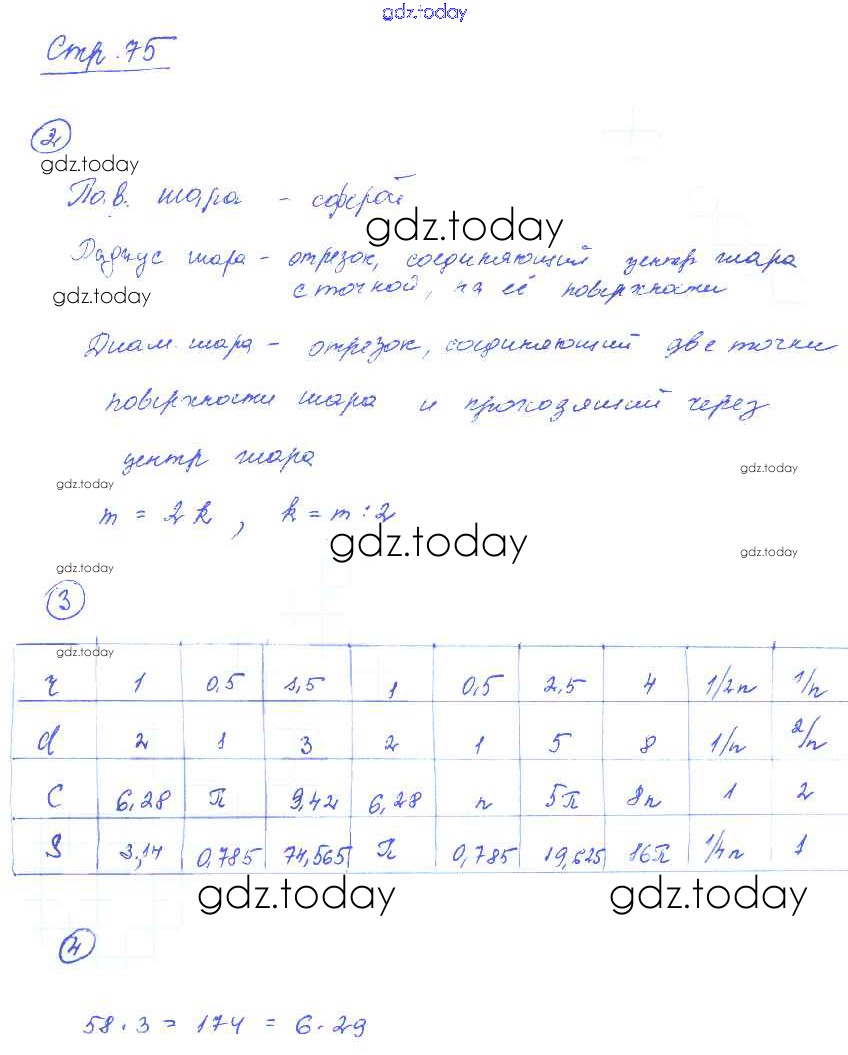 gdz.today
Стр. 75
2
gdz.today
Пов. шара - сферой
gdz.today
Радиус шара - отрезок, соединяющий центр шара
с точкой, на её поверхности
gdz.today
Диам. шара - отрезок, соединяющий две точки
поверхности шара и проходящий через
центр шара
gdz.today
gdz.today
m = 2k, k = m : 2
gdz.today
gdz.today
gdz.today
3
gdz.today
r 1 0,5 1,5 1 0,5 2,5 4 1/2π 1/π
d 2 1 3 2 1 5 8 1/π 2/π
C 6,28 π 9,42 6,28 π 5π 8π 1 2
S 3,14 0,785 74,565 π 0,785 19,625 16π 1/4π 1
gdz.today
gdz.today
4
58 · 3 = 174 = 6 · 29